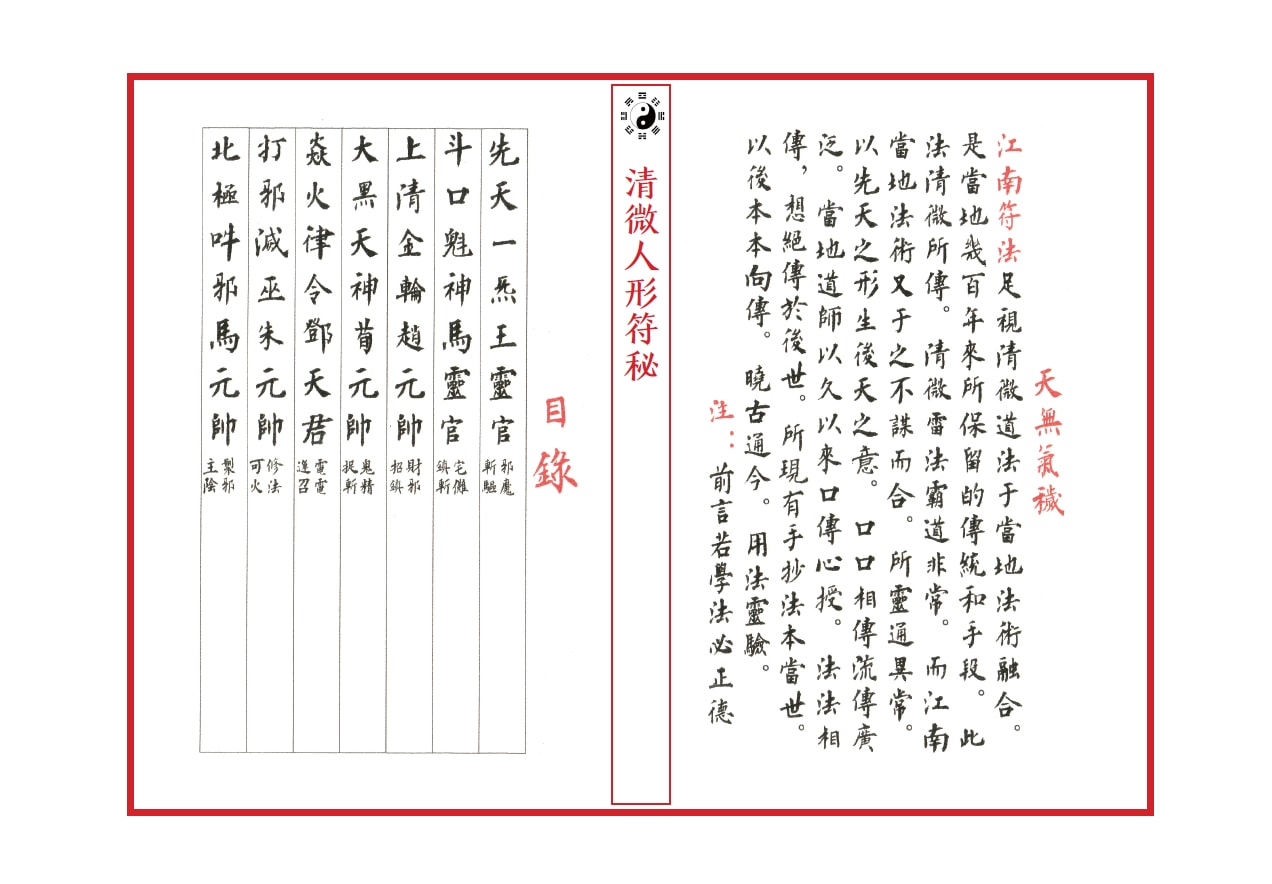 天無氣穢
江南符法足視清微道法于當地法術融合。
是當地幾百年來所保留的傳統和手段。此
法清微所傳。清微雷法霸道非常。而江南
當地法術又于之不謀而合。所靈通異常。
以先天之形生後天之意。口口相傳流傳廣
泛。當地道師以久以來口傳心授。法法相
傳，想絕傳於後世。所現有手抄法本當世。
以後本本向傳。曉古通今。用法靈驗。
注：前言若學法必正德
清微人形符秘
目錄
先天一炁王靈官 邪魔斬驅
斗口魁神馬靈官 宅儺鎮斬
上清金輪趙元帥 財邪招鎮
大黑天神苟元帥 鬼精捉斬
焱火律令鄧天君 雷電進召
打邪滅巫朱元帥 修法可火
北極吽邪馬元帥 製邪主陰